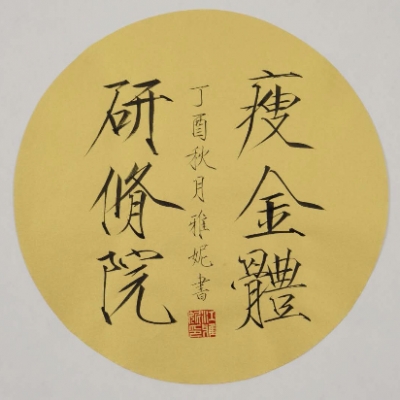 瘦金體
研脩院
丁酉秋月雅妮書